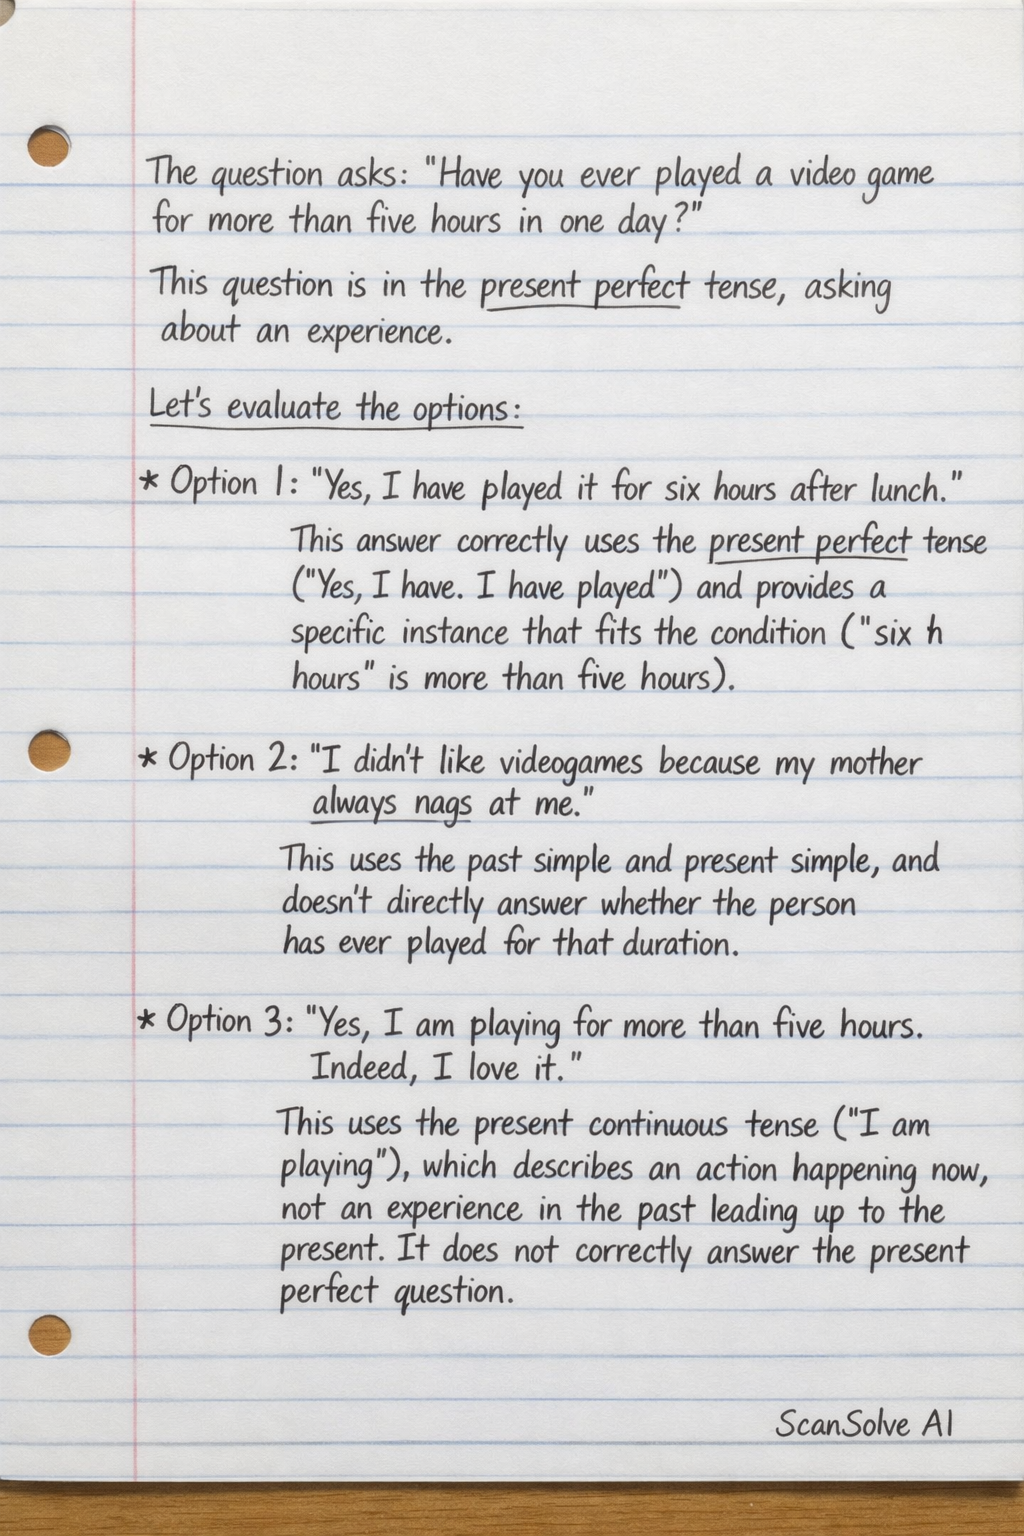 The question asks: "Have you ever played a video game
for more than five hours in one day?"
This question is in the present perfect tense, asking
about an experience.
Let's evaluate the options:
* Option 1: "Yes, I have played it for six hours after lunch."
This answer correctly uses the present perfect tense
("Yes, I have. I have played") and provides a
specific instance that fits the condition ("six h
hours" is more than five hours).
* Option 2: "I didn't like videogames because my mother
always nags at me."
This uses the past simple and present simple, and
doesn't directly answer whether the person
has ever played for that duration.
* Option 3: "Yes, I am playing for more than five hours.
Indeed, I love it."
This uses the present continuous tense ("I am
playing"), which describes an action happening now,
not an experience in the past leading up to the
present. It does not correctly answer the present
perfect question.
ScanSolve AI